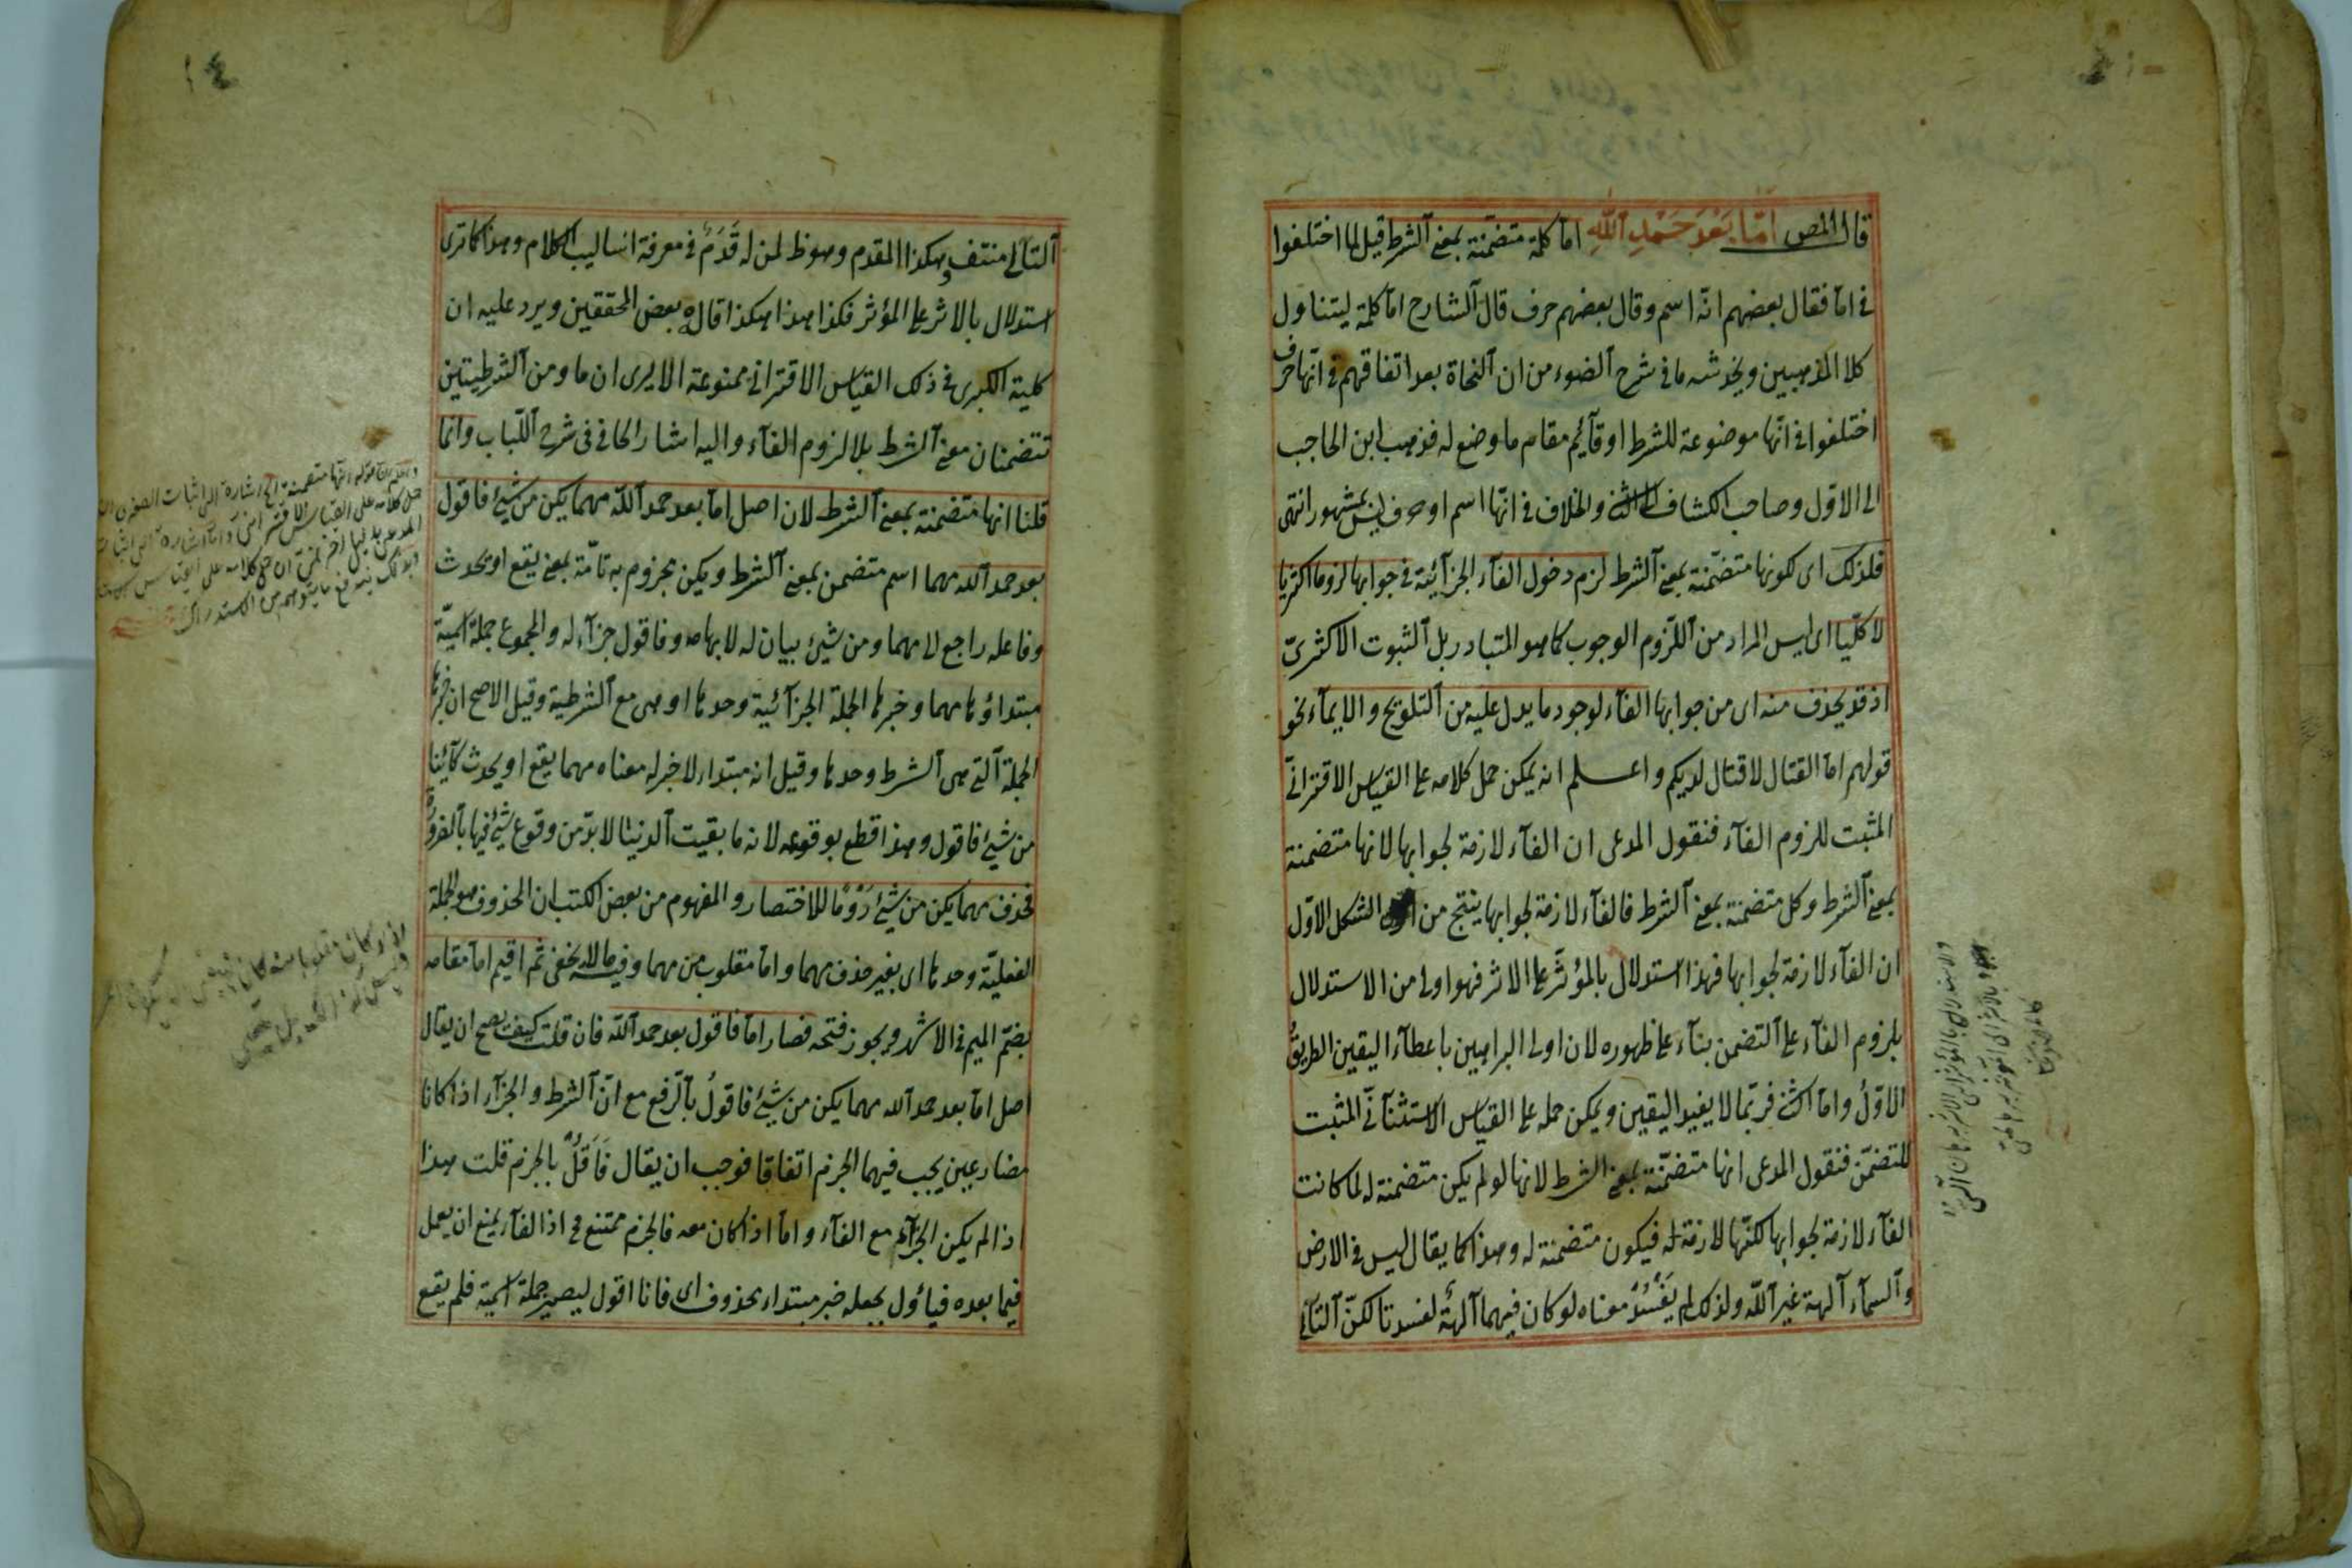 قال المص امّا بَعْدَ حَمْدِ اللّٰهِ اما كلمة متضمّنة بمعنى الشرط قيل لما اختلفوا
فى اما فقال بعضهم انّه اسم وقال بعضهم حرف قال الشارح اما كلمة ليتناول
كلا المذهبين ويخدشه ما فى شرح الضوء من ان النحاة بعد اتفاقهم فى انّها حرف
اختلفوا فى انّها موضوعة للشرط او قآئم مقام ما وضع له فذهب ابن الحاجب
الى الاول وصاحب الكشاف الى الثانى والخلاف فى انّها اسم او حرف ليس بمشهور انتهى
فلذلك اى لكونها متضمّنة بمعنى الشرط لزم دخول الفآء الجزآئية فى جوابها لزوما اكثريا
لا كلّيا اى ليس المراد من اللزوم الوجوب كما هو المتبادر بل الثبوت الاكثرىّ
اذ قد يحذف منه اى من جوابها الفآء لوجود ما يدل عليه من التلويح والايمآء نحو
قولهم اما القتال لا قتال لديكم واعلم انه يمكن حمل كلامه على القياس الاقترانىّ
المثبت للزوم الفآء فنقول المدعى ان الفآء لازمة لجوابها لانها متضمنة
بمعنى الشرط وكل متضمنة بمعنى الشرط فالفآء لازمة لجوابها ينتج من الشكل الاوّل
ان الفآء لازمة لجوابها فهذا استدلال بالمؤثّر على الاثر فهو اولى من الاستدلال
بلزوم الفآء على التضمن بنآء على ظهوره لان اولى البراهين باعطآء اليقين الطريقُ
الاوّلُ واما الثانى فربّما لا يفيد اليقين ويمكن حمله على القياس الاستثنآئىّ المثبت
للتضمّن فنقول المدعى انها متضمّنة بمعنى الشرط لانها لو لم يكن متضمنة له لما كانت
الفآء لازمة لجوابها لكنّها لازمة له فيكون متضمنة له وهذا كما يقال ليس فى الارض
والسمآء آلهة غير اللّه ولذلك لم يَفْسُدْ معناه لو كان فيهما آلهةٌ لفسدتا لكنّ التآلى
التآلى منتف وهكذا المقدم وهو ظ لمن له قَدَمٌ فى معرفة اساليب الكلام وهذا كما ترى
استدلال بالاثر على المؤثر فكذا هذا هكذا قاله بعض المحققين ويرد عليه ان
كلية الكبرى فى ذلك القياس الاقترانى ممنوعة الا يرى ان ما ومن الشرطيتين
تتضمنان معنى الشرط بلا لزوم الفآء واليه اشار الحافى فى شرح اللّباب وانما
قلنا انها متضمنة بمعنى الشرط لان اصل اما بعد حمد اللّه مهما يكن من شئ فاقول
بعد حمد اللّه مهما اسم متضمن بمعنى الشرط ويكن مجزوم به تامّة بمعنى يقع او يحدث
وفاعله راجع لا مهما ومن شئ بيان له لابهامه وفاقول جزآء له والمجموع جملة اسميّة
مبتداؤها مهما وخبرها الجملة الجزآئية وحدها او هى مع الشرطية وقيل الاصح ان خبرها
الجملة التى هى الشرط وحدها وقيل انه مبتداء لا خبر له معناه مهما يقع او يحدث كآئنا
من شئ فاقول وهذا قطع بوقوعه لانه ما بقيت الدنيا لا بدّ من وقوع شئ فيها بالضرورة
فحذف مهما يكن من شئ رَوْمًا للاختصار والمفهوم من بعض الكتب ان المحذوف هو الجملة
الفعليّة وحدها اى بغير حذف مهما واما مقلوب من مهما وفيه ما لا يخفى ثم اقيم اما مقامه
بضمّ الميم فى الاشهر ويجوز فتحه فصار اما فاقول بعد حمد اللّه فان قلت كيف يصح ان يقال
اصل اما بعد حمد اللّه مهما يكن من شئ فاقولُ بالرّفع مع انّ الشرط والجزآء اذا كانا
مضارعين يجب فيهما الجزم اتفاقا فوجب ان يقال فَاَقُلْ بالجزم قلت هذا
اذا لم يكن الجزآء مع الفآء واما اذا كان معه فالجزم ممتنع فى اذا الفآء يمنع ان يعمل
فيما بعده فيأول بجعله خبر مبتداء محذوف اى فانا اقول ليصير جملة اسميّة فلم يقع